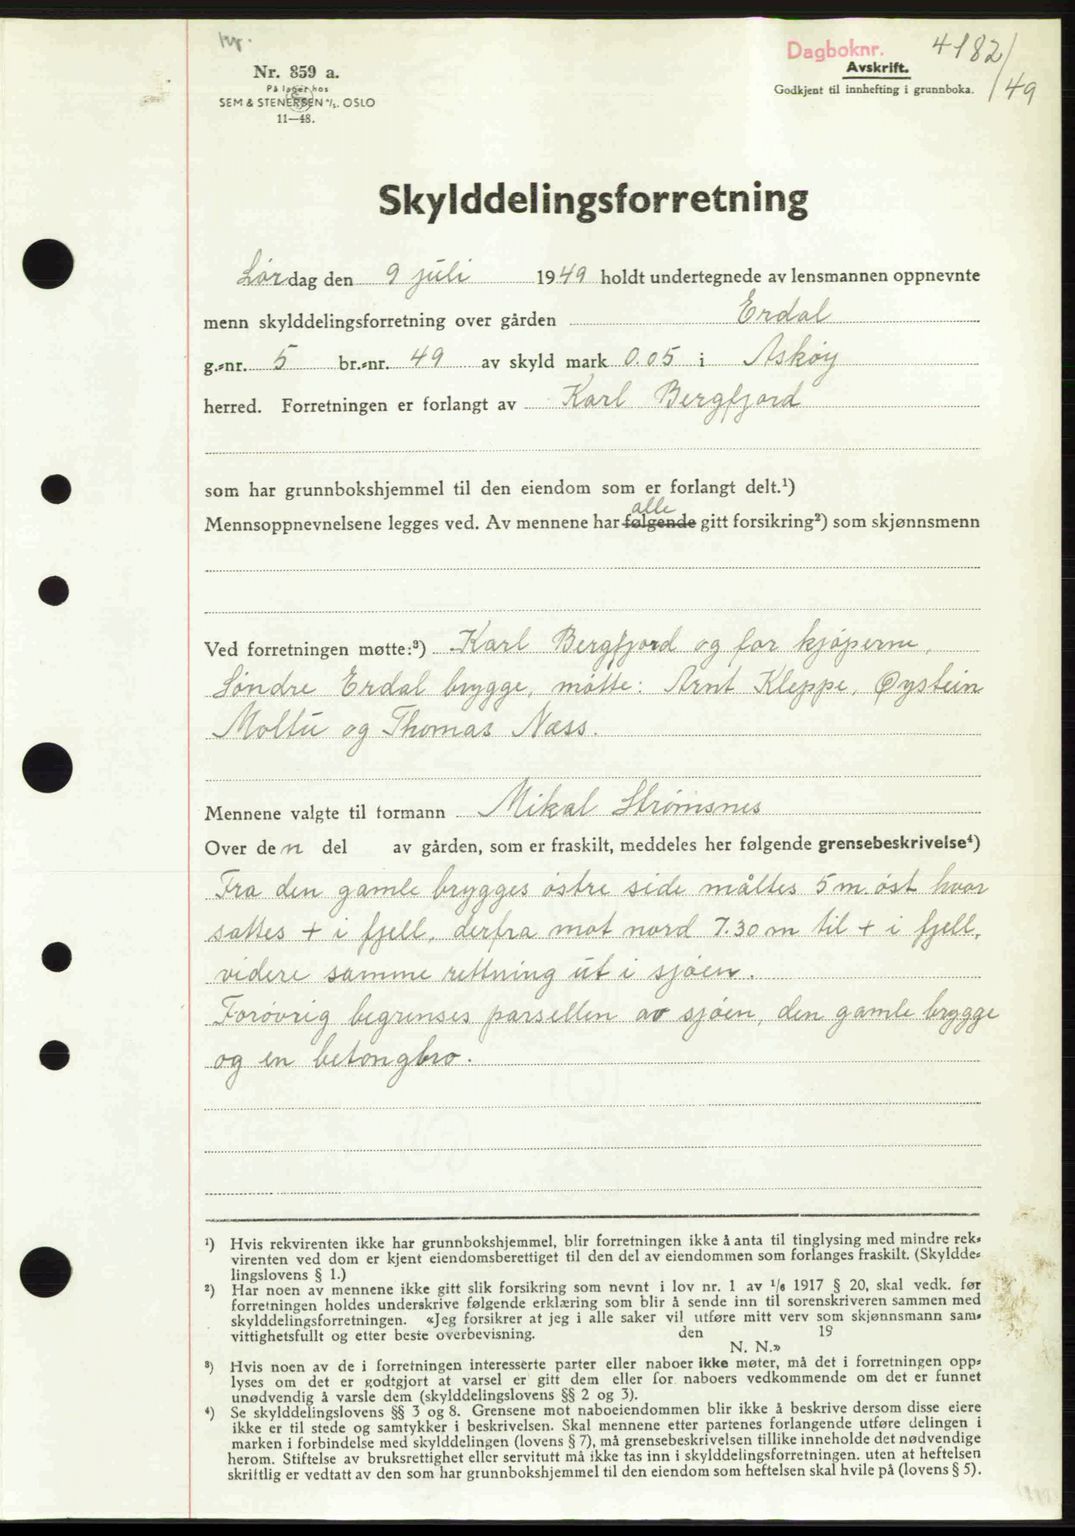 Nr. 859 a.
På lager hos
SEM & STENERSEN A/S. OSLO
11—48.
Dagboknr. 4182/49
Avskrift.
Godkjent til innhefting i grunnboka.
Skylddelingsforretning
Lørdag den 9 juli 1949 holdt undertegnede av lensmannen oppnevnte
menn skylddelingsforretning over gården Erdal
g.-nr. 5 br.-nr. 49 av skyld mark 0.05 i Askøy
herred. Forretningen er forlangt av Karl Bergfjord
som har grunnbokshjemmel til den eiendom som er forlangt delt.¹)
alle
Mennsoppnevnelsene legges ved. Av mennene har følgende gitt forsikring²) som skjønnsmenn
Ved forretningen møtte:³) Karl Bergfjord og for kjøperne,
Søndre Erdal brygge, møtte: Arnt Kleppe, Øystein
Moltu og Thomas Næss.
Mennene valgte til formann Mikal Strømsnes
Over den del av gården, som er fraskilt, meddeles her følgende grensebeskrivelse⁴)
Fra den gamle brygges østre side måltes 5 m. øst hvor
sattes + i fjell, derfra mot nord 7.30 m til + i fjell,
videre samme rettning ut i sjøen.
Forøvrig begrenses parsellen av sjøen, den gamle brygge
og en betongbro.
¹) Hvis rekvirenten ikke har grunnbokshjemmel, blir forretningen ikke å anta til tinglysing med mindre rek-
virenten ved dom er kjent eiendomsberettiget til den del av eiendommen som forlanges fraskilt. (Skyldde-
lingslovens § 1.)
²) Har noen av mennene ikke gitt slik forsikring som nevnt i lov nr. 1 av 1/6 1917 § 20, skal vedk. før
forretningen holdes underskrive følgende erklæring som blir å sende inn til sorenskriveren sammen med
skylddelingsforretningen. «Jeg forsikrer at jeg i alle saker vil utføre mitt verv som skjønnsmann sam-
vittighetsfullt og etter beste overbevisning. den 19
N. N.»
³) Hvis noen av de i forretningen interesserte parter eller naboer ikke møter, må det i forretningen opp-
lyses om det er godtgjort at varsel er gitt dem eller for naboers vedkommende om det er funnet
unødvendig å varsle dem (skylddelingslovens §§ 2 og 3).
⁴) Se skylddelingslovens §§ 3 og 8. Grensene mot naboeiendommen blir ikke å beskrive dersom disse eiere
ikke er til stede og samtykker i beskrivelsen. Skal mennene etter partenes forlangende utføre delingen i
marken i forbindelse med skylddelingen (lovens § 7), må grensebeskrivelsen tillike inneholde det nødvendige
herom. Stiftelse av bruksrettighet eller servitutt må ikke tas inn i skylddelingsforretningen. uten at heftelsen
skriftlig er vedtatt av den som har grunnbokshjemmel til den eiendom som heftelsen skal hvile på (lovens § 5).